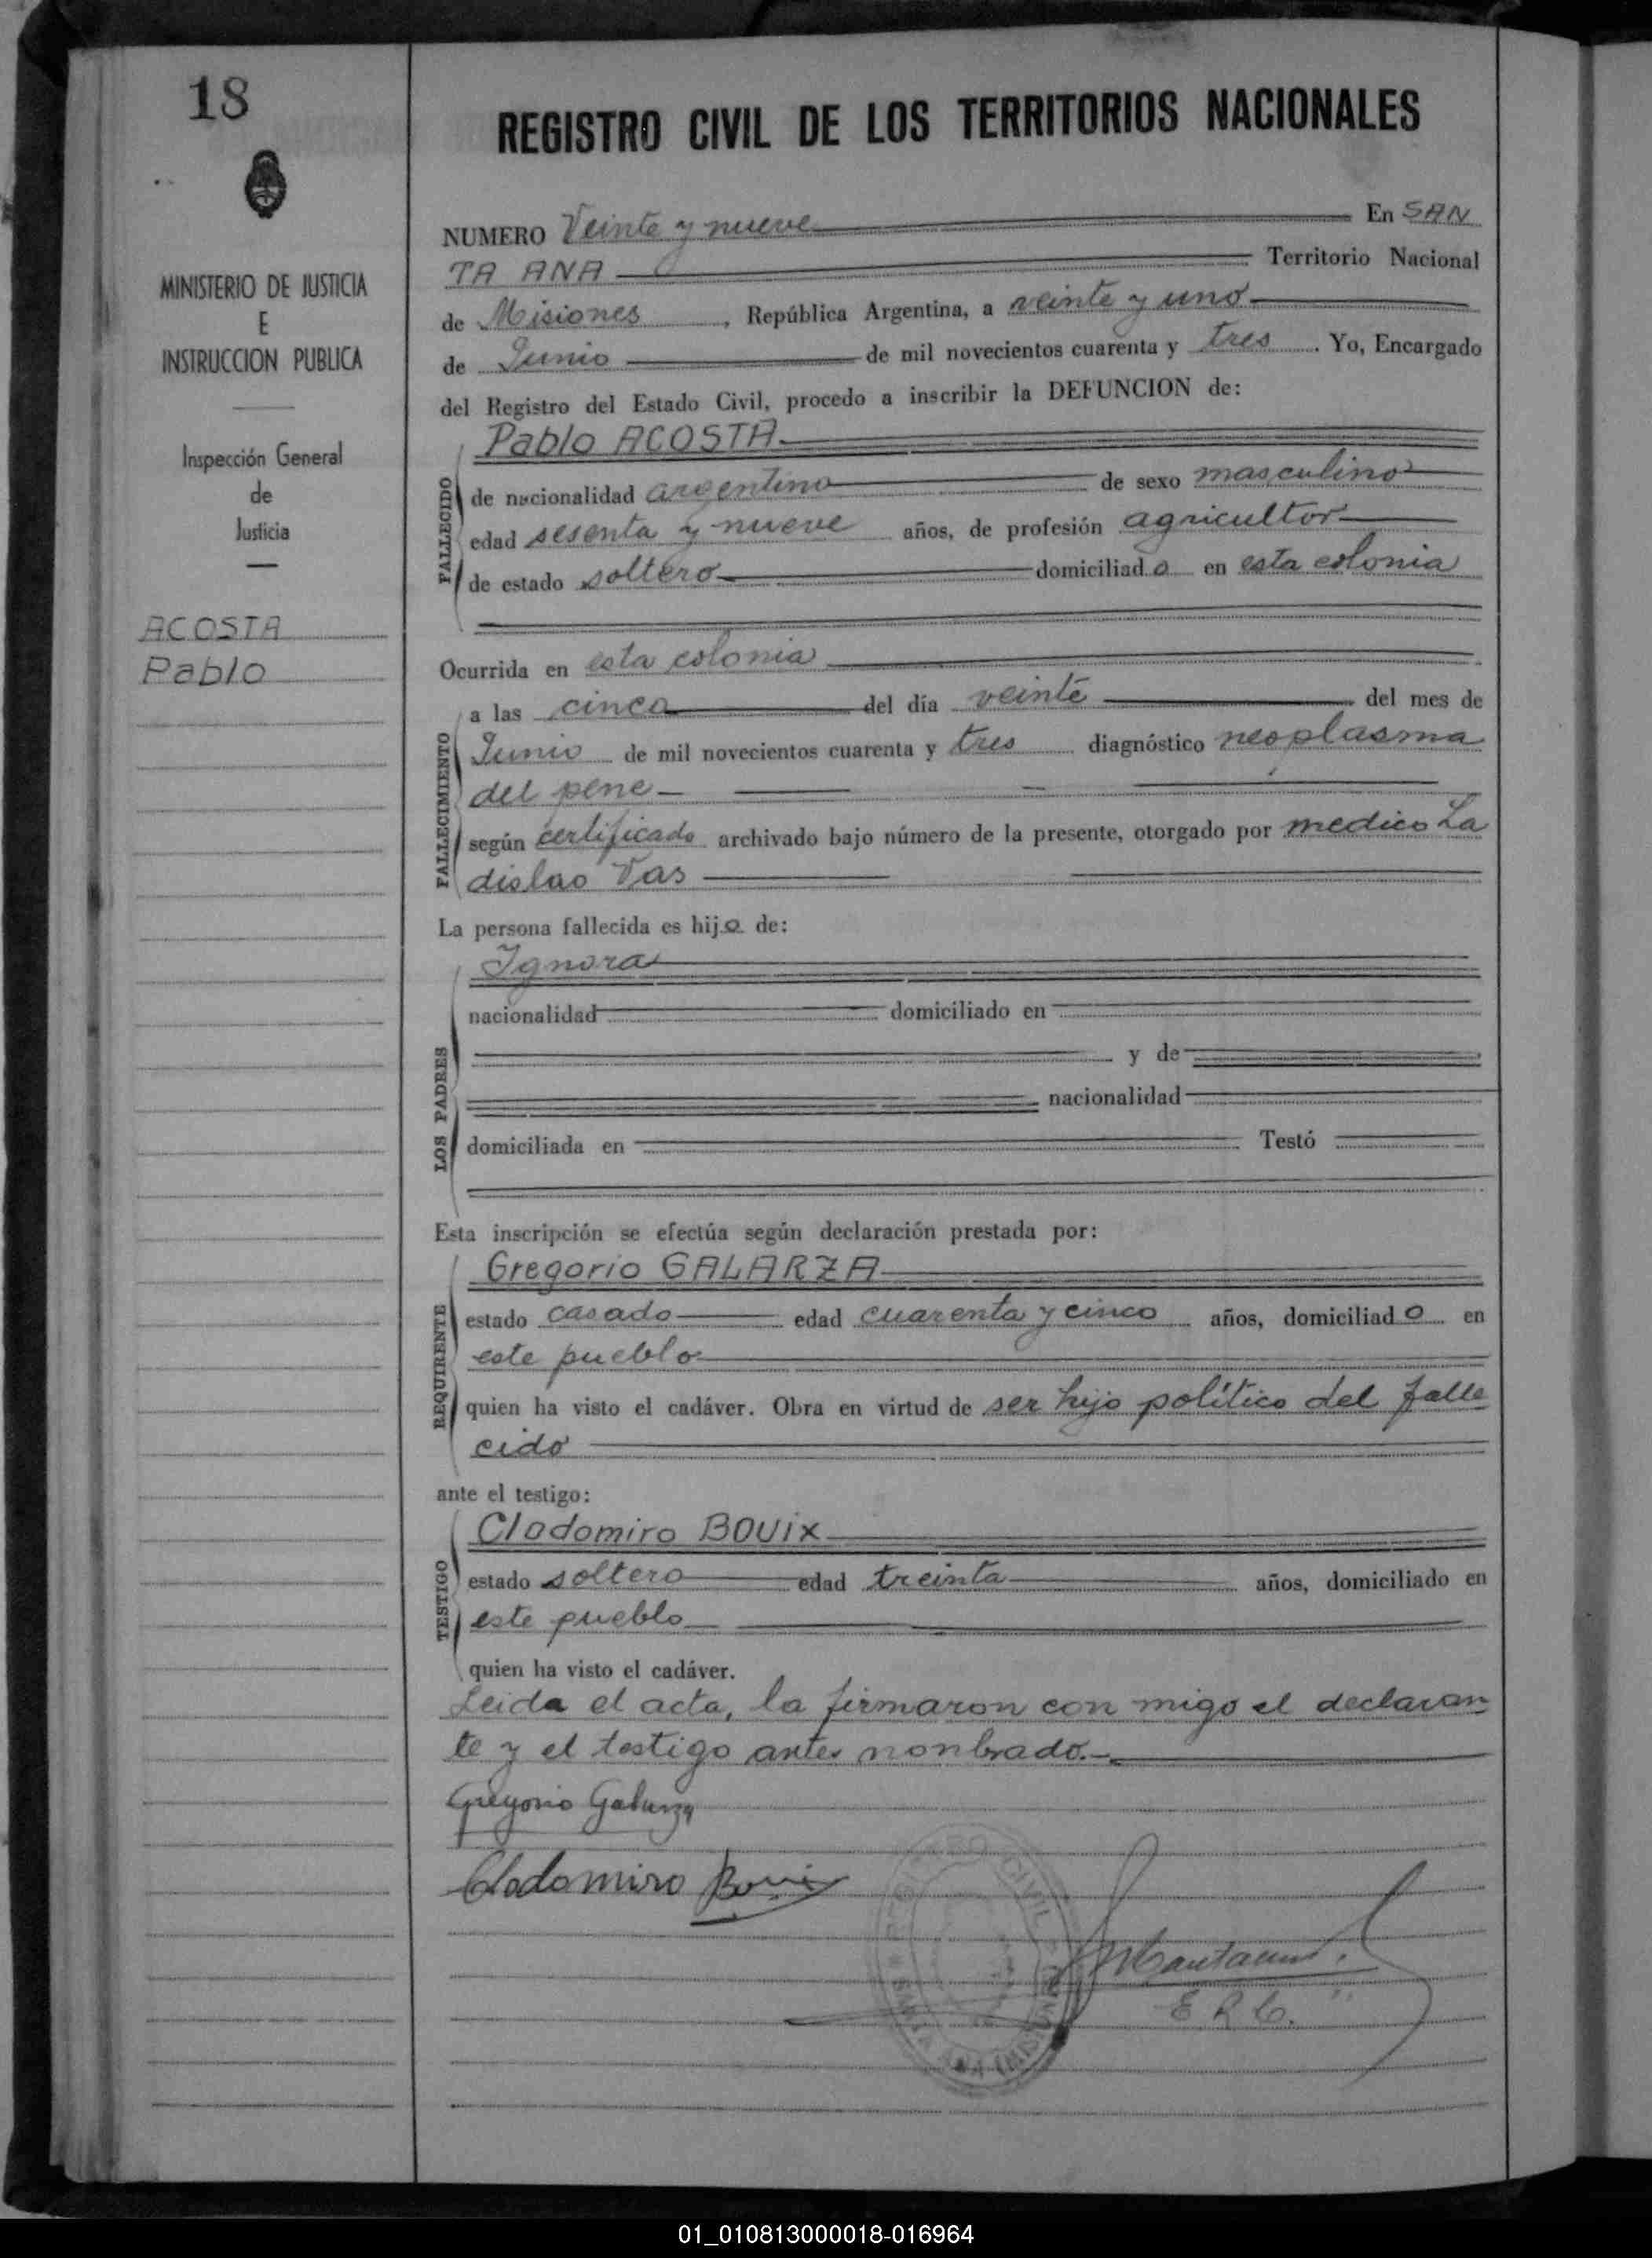 18
MINISTERIO DE JUSTICIA
E
INSTRUCCION PUBLICA
Inspección General
de
Justicia
ACOSTA
Pablo
REGISTRO CIVIL DE LOS TERRITORIOS NACIONALES
NUMERO Veinte y nueve En SAN
TA ANA Territorio Nacional
de Misiones, República Argentina, a veinte y uno
de Junio de mil novecientos cuarenta y tres. Yo, Encargado
del Registro del Estado Civil, procedo a inscribir la DEFUNCION de:
FALLECIDO
Pablo ACOSTA
de nacionalidad argentino de sexo masculino
edad sesenta y nueve años, de profesión agricultor
de estado soltero domiciliado en esta colonia
Ocurrida en esta colonia
FALLECIMIENTO
a las cinco del día veinte del mes de
Junio de mil novecientos cuarenta y tres diagnóstico neoplasma
del pene
según certificado archivado bajo número de la presente, otorgado por medico La
dislao Vas
La persona fallecida es hijo de:
LOS PADRES
Ignora
nacionalidad domiciliado en
y de
nacionalidad
domiciliada en Testó
Esta inscripción se efectúa según declaración prestada por:
REQUIRENTE
Gregorio GALARZA
estado casado edad cuarenta y cinco años, domiciliado en
este pueblo
quien ha visto el cadáver. Obra en virtud de ser hijo político del falle
cido
ante el testigo:
TESTIGO
Clodomiro BOUIX
estado soltero edad treinta años, domiciliado en
este pueblo
quien ha visto el cadáver.
Leida el acta, la firmaron con migo el declaran
te y el testigo antes nonbrado.-
Gregorio Galarza
Clodomiro Bouix
E R C.
01_010813000018-016964